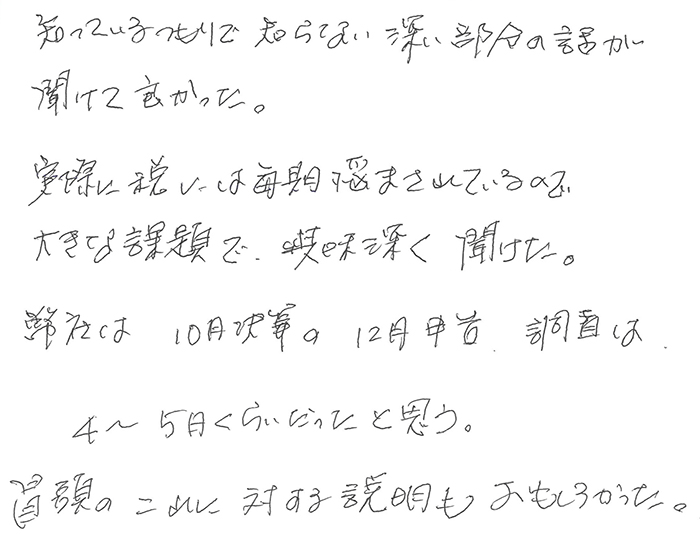 知っているつもりで知らない深い部分の話が
聞けて良かった。
実際に税には毎期悩まされているので
大きな課題で、興味深く聞けた。
弊社は10月決算の12月申告、調査は、
4～5月くらいだったと思う。
冒頭のこれに対する説明もおもしろかった。